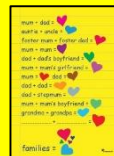 mum + dad =
auntie + uncle =
foster mum + foster dad =
mum + mum =
dad + dad's boyfriend =
mum + mum's girlfriend =
mum dad =
dad + dad =
dad + stepmum =
mum + mum's boyfriend =
grandma + grandpa =
+ =
families =